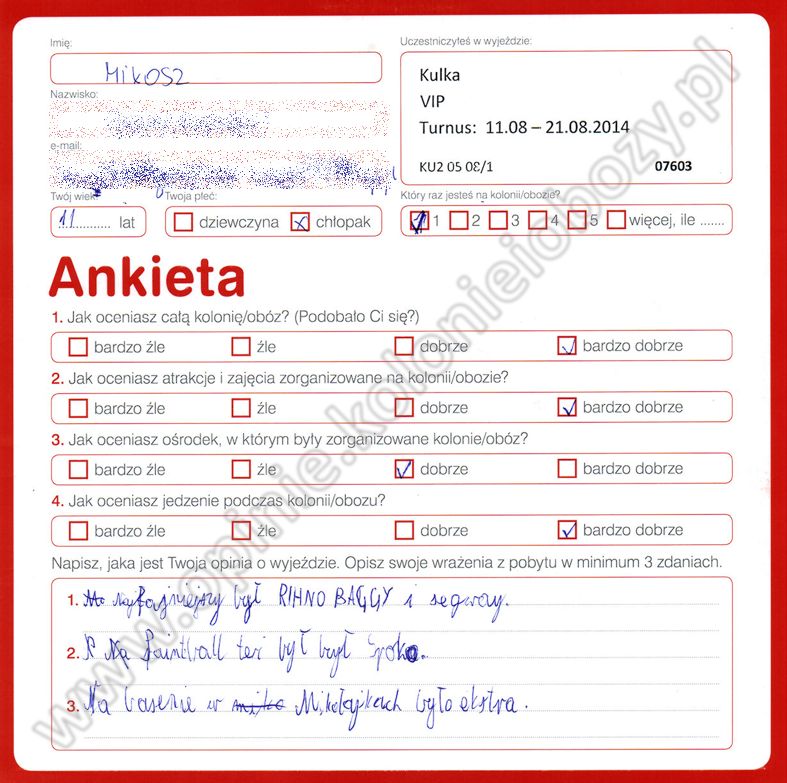 Imię:
MIKOSZ
Nazwisko:
e-mail:
Uczestniczyłeś w wyjeździe:
Kulka
VIP
Turnus: 11.08 – 21.08.2014
KU2 05 08/1 07603
Twój wiek:
11 lat
Twoja płeć:
dziewczyna chłopak
Który raz jesteś na kolonii/obozie?
1 2 3 4 5 więcej, ile .......
Ankieta
1. Jak oceniasz całą kolonię/obóz? (Podobało Ci się?)
bardzo źle źle dobrze bardzo dobrze
2. Jak oceniasz atrakcje i zajęcia zorganizowane na kolonii/obozie?
bardzo źle źle dobrze bardzo dobrze
3. Jak oceniasz ośrodek, w którym były zorganizowane kolonie/obóz?
bardzo źle źle dobrze bardzo dobrze
4. Jak oceniasz jedzenie podczas kolonii/obozu?
bardzo źle źle dobrze bardzo dobrze
Napisz, jaka jest Twoja opinia o wyjeździe. Opisz swoje wrażenia z pobytu w minimum 3 zdaniach.
1. Najfajniejszy był RIHNO BAGGY i segway.
2. Paintball też był był spoko.
3. Na basenie w Mikołajkach było ekstra.
www.opinie.kolonieiobozy.pl